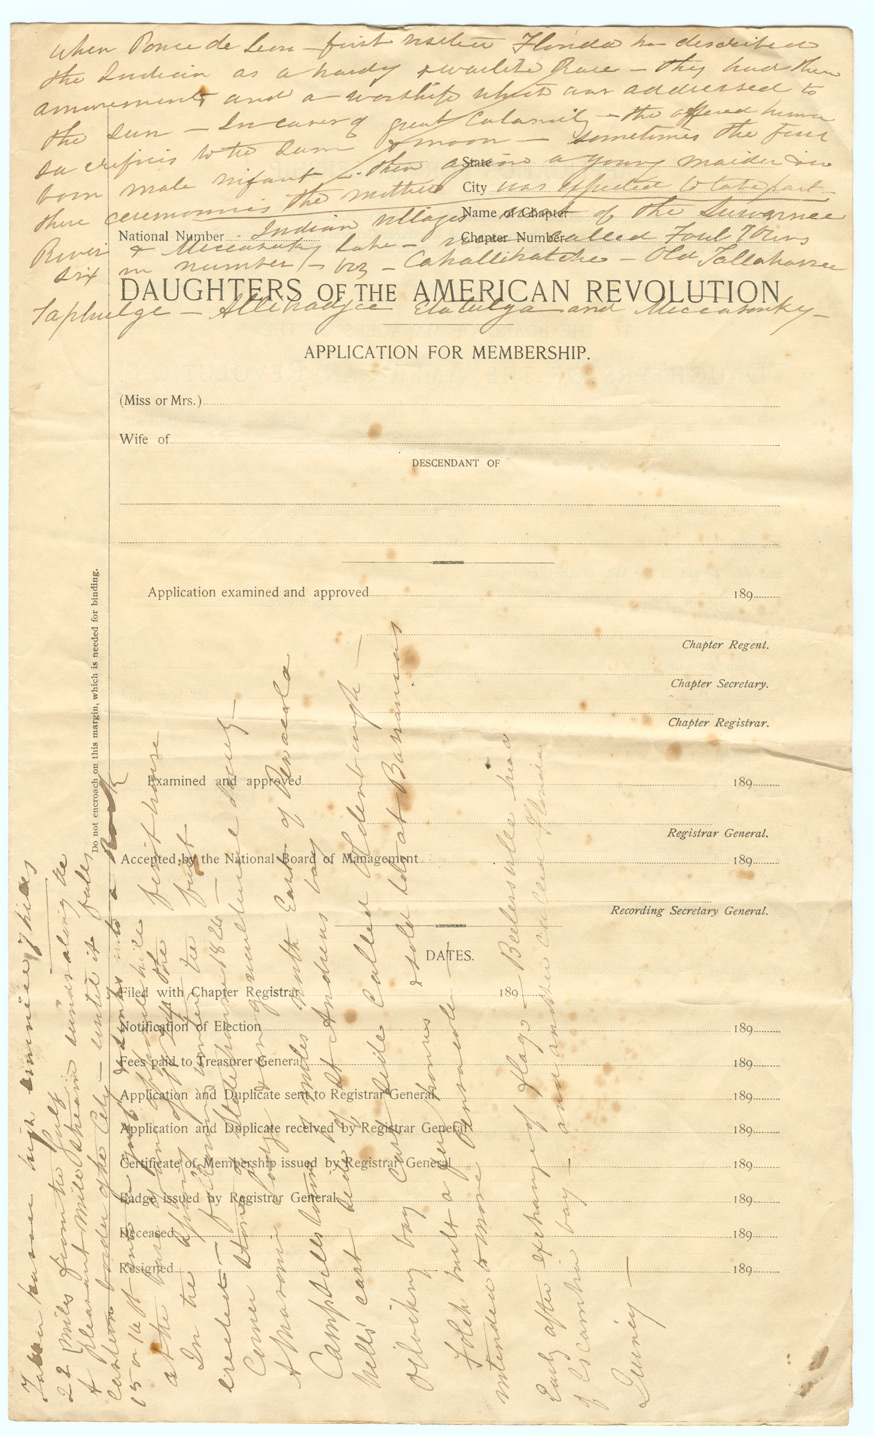 When Ponce de Leon first visited Florida he described
the Indian as a hardy & warlike Race — they had their
amusements and a worship which was addressed to
the Sun — In cases of great Calamity — the offered human
sacrifices to the Sun & moon — sometimes the first
born male infant — then again a young maiden in
these ceremonies the mother was expected to take part —
Indian villages of the Suwannee
River & Miccasuky Lake — called Foul Towns
six in number — viz — Cahallihatchee — Old Tallahassee
Taphulge — Allehadjee Etatulga and Miccasouky —
State
City
Name of Chapter
National Number
Chapter Number
DAUGHTERS OF THE AMERICAN REVOLUTION
APPLICATION FOR MEMBERSHIP.
(Miss or Mrs.)
Wife of
DESCENDANT OF
Application examined and approved 189
Chapter Regent.
Chapter Secretary.
Chapter Registrar.
Examined and approved 189
Registrar General.
Accepted by the National Board of Management 189
Recording Secretary General.
DATES.
Filed with Chapter Registrar 189
Notification of Election 189
Fees paid to Treasurer General 189
Application and Duplicate sent to Registrar General 189
Application and Duplicate received by Registrar General 189
Certificate of Membership issued by Registrar General 189
Badge issued by Registrar General 189
Deceased 189
Resigned 189
Do not encroach on this margin, which is needed for binding.
high eminence of hills
22 miles from the Gulf
A pleasant Mile stream winds along the
Eastern border of the City — until it falls
15 or 16 ft into a gulf & sinks into a Rock
at the base of an opposite hill first house
In the Spring of the first
erected — 1826 —
Corner stone
& Masonic Lodge
Campbells town 10 miles North East of Pensacola
Wells east side of St Andrews bay
Ocklockny bay East side called Aldenburgh —
Folch built a few houses & sold lots at Barrancas
intended to move Pensacola —
Early after exchange of flags — Beelersville head
of Escambia bay — and another called Florida
Quincy —